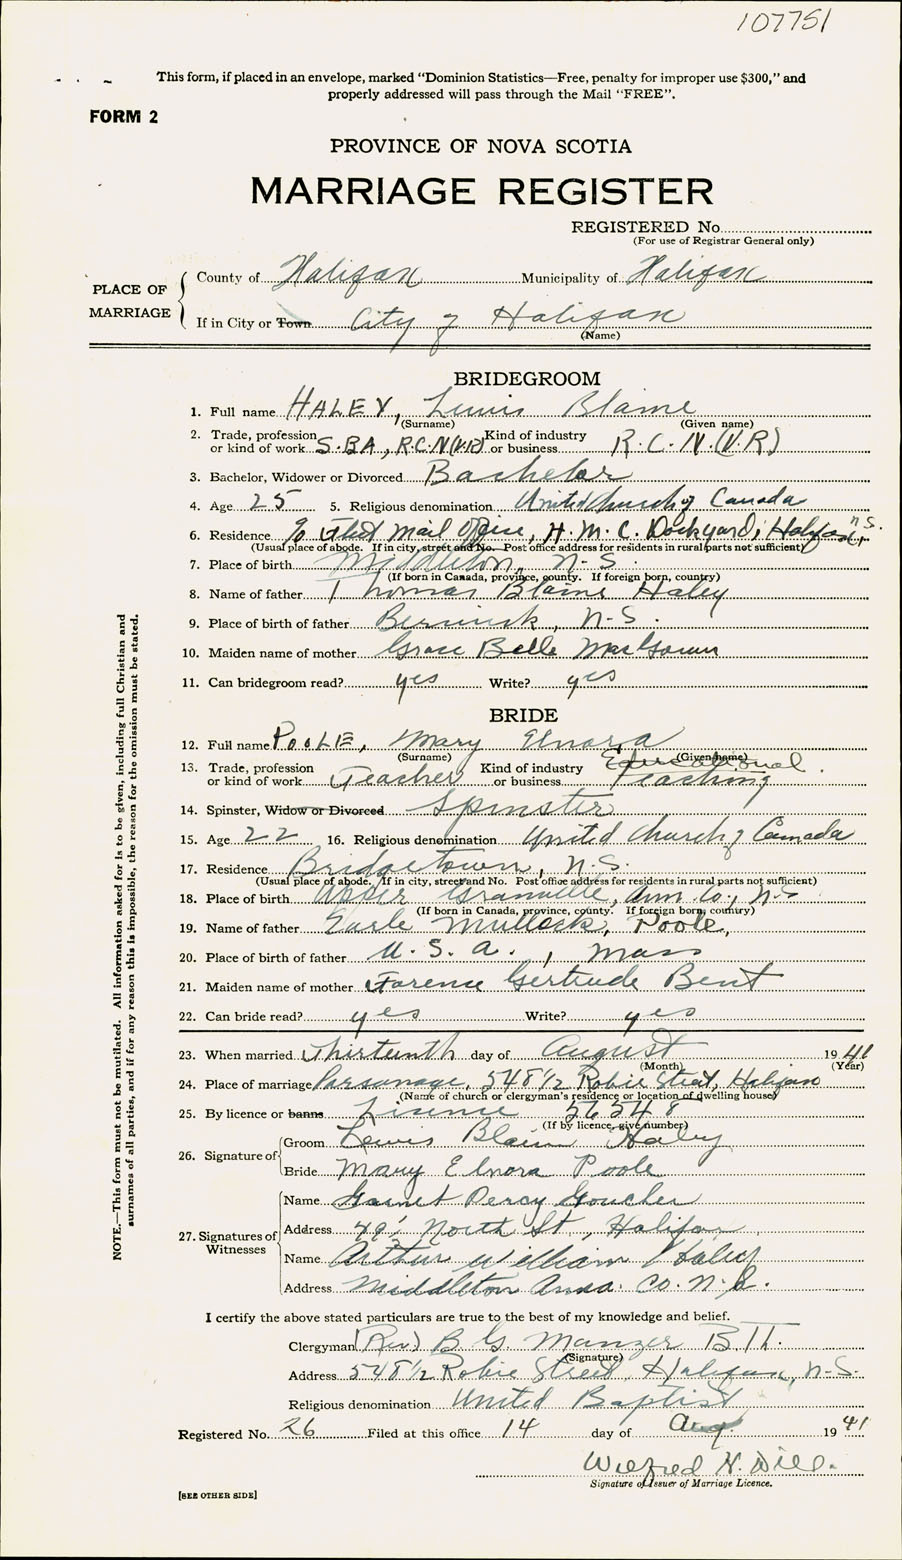 107751
This form, if placed in an envelope, marked "Dominion Statistics—Free, penalty for improper use $300," and
properly addressed will pass through the Mail "FREE".
FORM 2
PROVINCE OF NOVA SCOTIA
MARRIAGE REGISTER
REGISTERED No.
(For use of Registrar General only)
PLACE OF MARRIAGE
County of Halifax Municipality of Halifax
If in City or Town City of Halifax
(Name)
BRIDEGROOM
1. Full name HALEY, Lewis Blaine
(Surname) (Given name)
2. Trade, profession or kind of work S.BA, R.C.N(V.R) Kind of industry or business R.C.N.(V.R)
3. Bachelor, Widower or Divorced Bachelor
4. Age 25 5. Religious denomination United Church of Canada
6. Residence % Fleet Mail Office, H.M.C. Dockyard, Halifax, N.S.
(Usual place of abode. If in city, street and No. Post office address for residents in rural parts not sufficient)
7. Place of birth Middleton, N.S.
(If born in Canada, province, county. If foreign born, country)
8. Name of father Thomas Blaine Haley
9. Place of birth of father Berwick, N.S.
10. Maiden name of mother Grace Belle MacGowan
11. Can bridegroom read? yes Write? yes
BRIDE
12. Full name POOLE, Mary Elnora
(Surname) (Given name)
13. Trade, profession or kind of work Teacher Kind of industry or business Educational Teaching
14. Spinster, Widow or Divorced Spinster
15. Age 22 16. Religious denomination United Church of Canada
17. Residence Bridgetown, N.S.
(Usual place of abode. If in city, street and No. Post office address for residents in rural parts not sufficient)
18. Place of birth Upper Granville, Ann. Co., N.S
(If born in Canada, province, county. If foreign born, country)
19. Name of father Earle Mullock, Poole,
20. Place of birth of father U.S.A., Mass
21. Maiden name of mother Florence Gertrude Bent
22. Can bride read? yes Write? yes
23. When married Thirteenth day of August 1941
(Month) (Year)
24. Place of marriage Parsonage, 548 1/2 Robie Street, Halifax
(Name of church or clergyman's residence or location of dwelling house)
25. By licence or banns License 56548
(If by licence, give number)
26. Signature of
Groom Lewis Blaine Haley
Bride Mary Elnora Poole
27. Signatures of Witnesses
Name Garnet Percy Goucher
Address North St., Halifax
Name Arthur William Haley
Address Middleton Anna. Co. N.S.
I certify the above stated particulars are true to the best of my knowledge and belief.
Clergyman (Rev) B. G. Manzer B.Th.
(Signature)
Address 548 1/2 Robie Street, Halifax, N.S.
Religious denomination United Baptist
Registered No. 26 Filed at this office 14 day of Aug. 1941
Wilfred H. Dill.
Signature of Issuer of Marriage Licence.
[SEE OTHER SIDE]
NOTE.—This form must not be mutilated. All information asked for is to be given, including full Christian and
surnames of all parties, and if for any reason this is impossible, the reason for the omission must be stated.